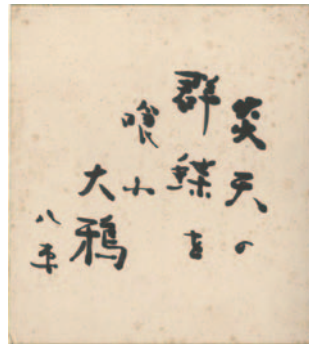 炎天の
群蝶を
喰ふ
大鴉
八平